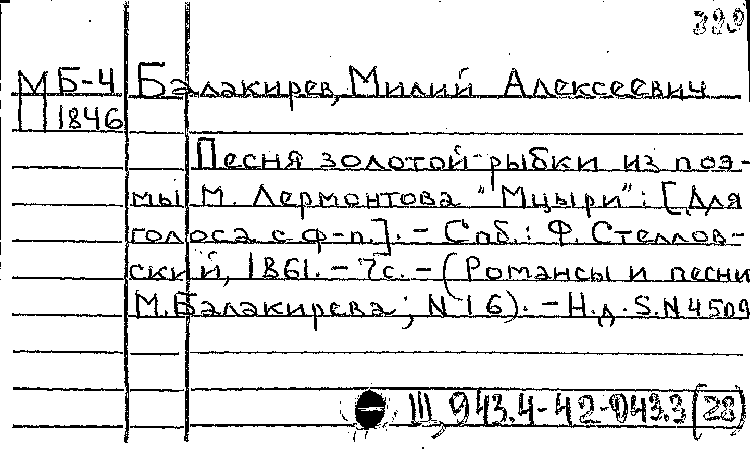 399
М Б-4 Балакирев, Милий Алексеевич
П 1846
Песня золотой рыбки из поэ-
мы М. Лермонтова "Мцыри": [Для
голоса с ф-п.]. – Спб.: Ф. Стеллов-
ский, 1861. – 7с. – (Романсы и песни
М. Балакирева; N 16). – Н.д. S.N 4509
III, 943.4-42-043.3 (28)